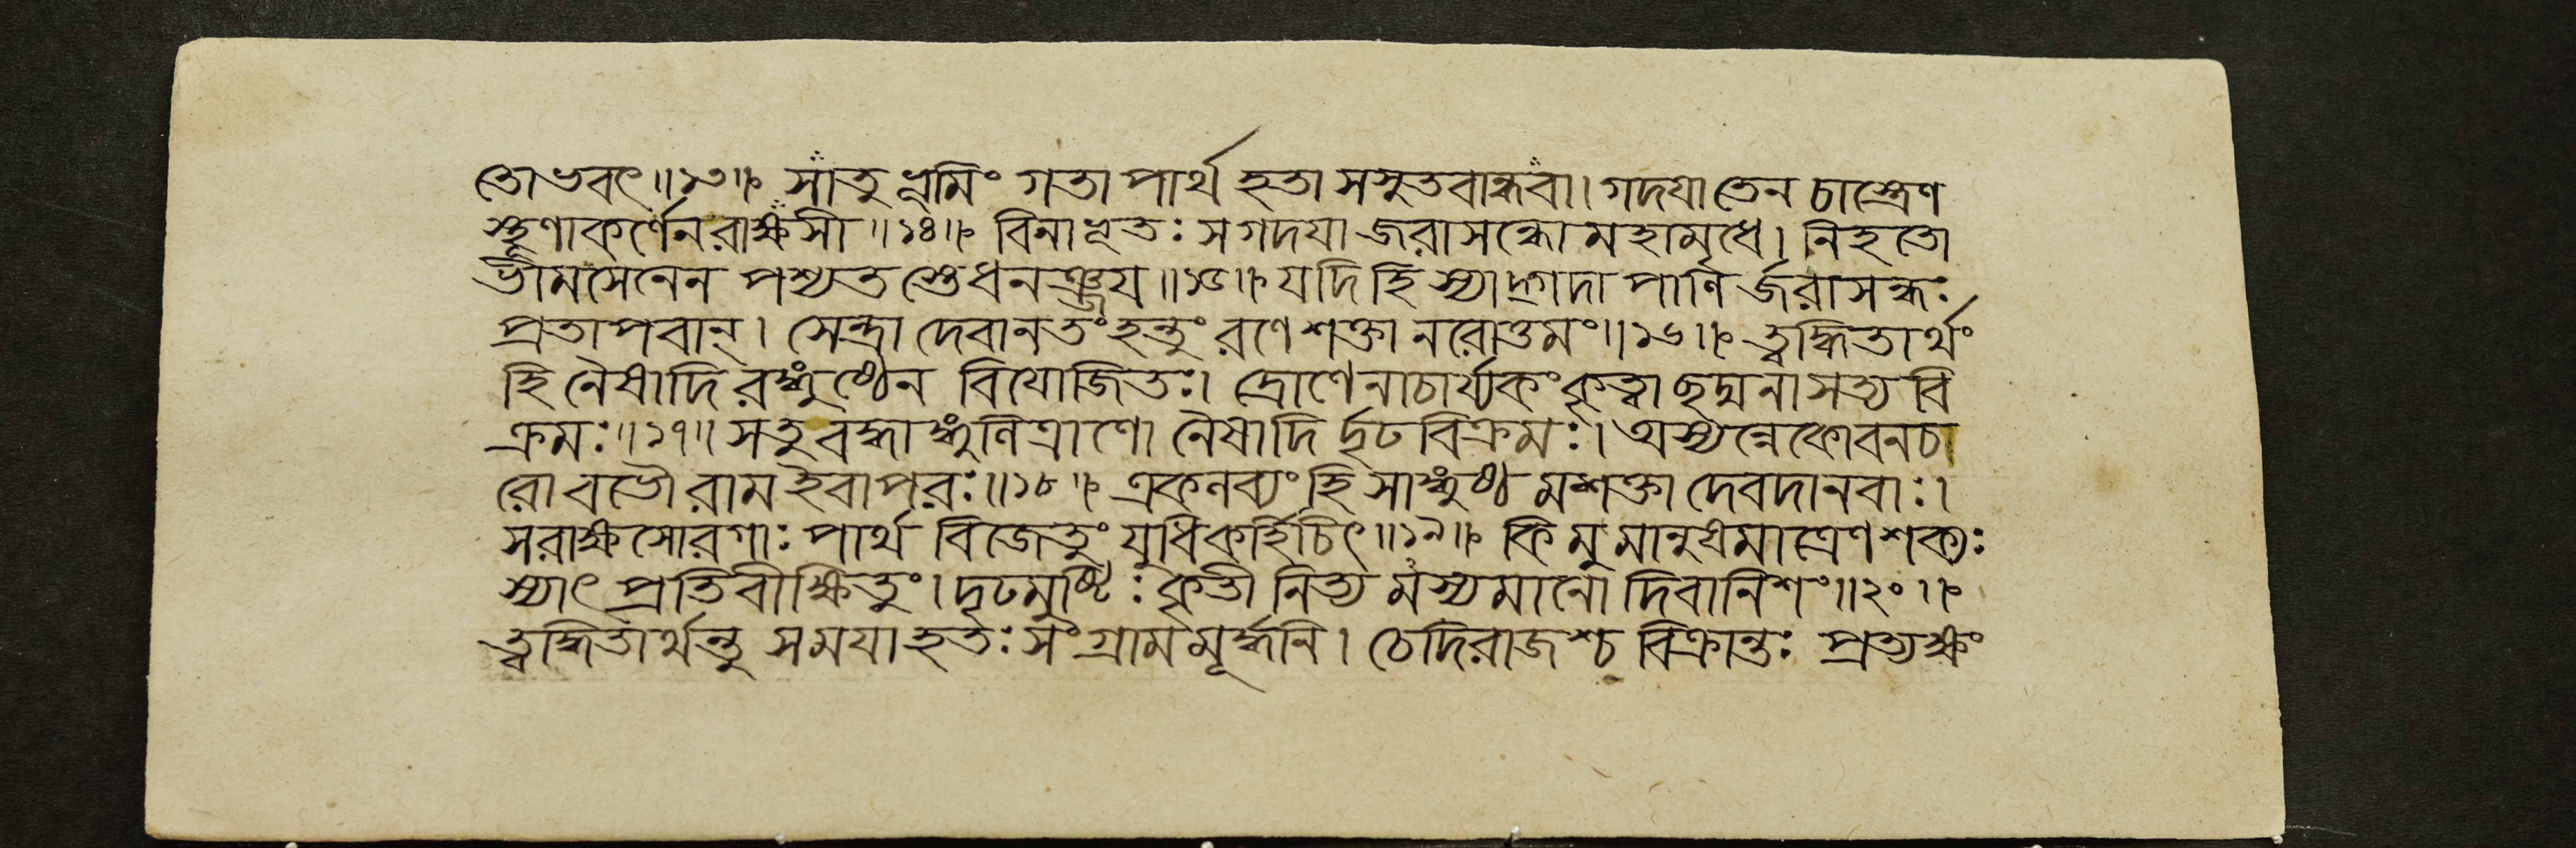 তোভবৎ॥১৩॥ সাতু ভূমিং গতা পার্থ হতা সসুতবান্ধবা। গদযাতেন চাস্ত্রেণ
স্থূণাকর্ণেনরাক্ষসী॥১৪॥ বিনাভূতঃ সগদযা জরাসন্ধোমহামৃধে। নিহতো
ভীমসেনেন পশ্যতস্তেধনঞ্জয॥১৫॥ যদিহিস্যাদ্গদাপাণির্জরাসন্ধঃ
প্রতাপবান্। সেন্দ্রা দেবানতংহন্তুং রণেশক্তা নরোত্তমং॥১৬॥ ত্বদ্ধিতার্থং
হি নৈষাদিরঙ্গুষ্ঠেন বিযোজিতঃ। দ্রোণেনাচার্য্যকংকৃত্বা ছদ্মনা সত্যবি
ক্রমঃ॥১৭॥ সতুবদ্ধাঙ্গুণিত্রাণো নৈষাদির্দৃঢবিক্রমঃ। অস্যন্নেকোবনচা
রো বভৌ রামইবাপরঃ॥১৮॥ একলব্যংহি সাঙ্গুষ্ঠমশক্তা দেবদানবাঃ।
সরাক্ষসোরগাঃ পার্থ বিজেতুং যুধিকর্হিচিৎ॥১৯॥ কিমুমানুষমাত্রেণশক্যঃ
স্যাৎ প্রতিবীক্ষিতুং। দৃঢমুষ্টিঃ কৃতী নিত্যমস্যমানো দিবানিশং॥২০॥
ত্বদ্ধিতার্থন্তু সমযাহতঃ সংগ্রামমূর্দ্ধনি। চেদিরাজশ্চ বিক্রান্তঃ প্রত্যক্ষং